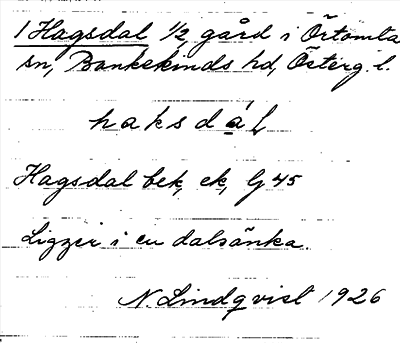 1 Hagsdal 1/2 gård i Örtomta
sn, Bankekinds hd, Österg. l.
haksdáL
Hagsdal bek, ek, G 45
Ligger i en dalsänka.
N. Lindqvist 1926